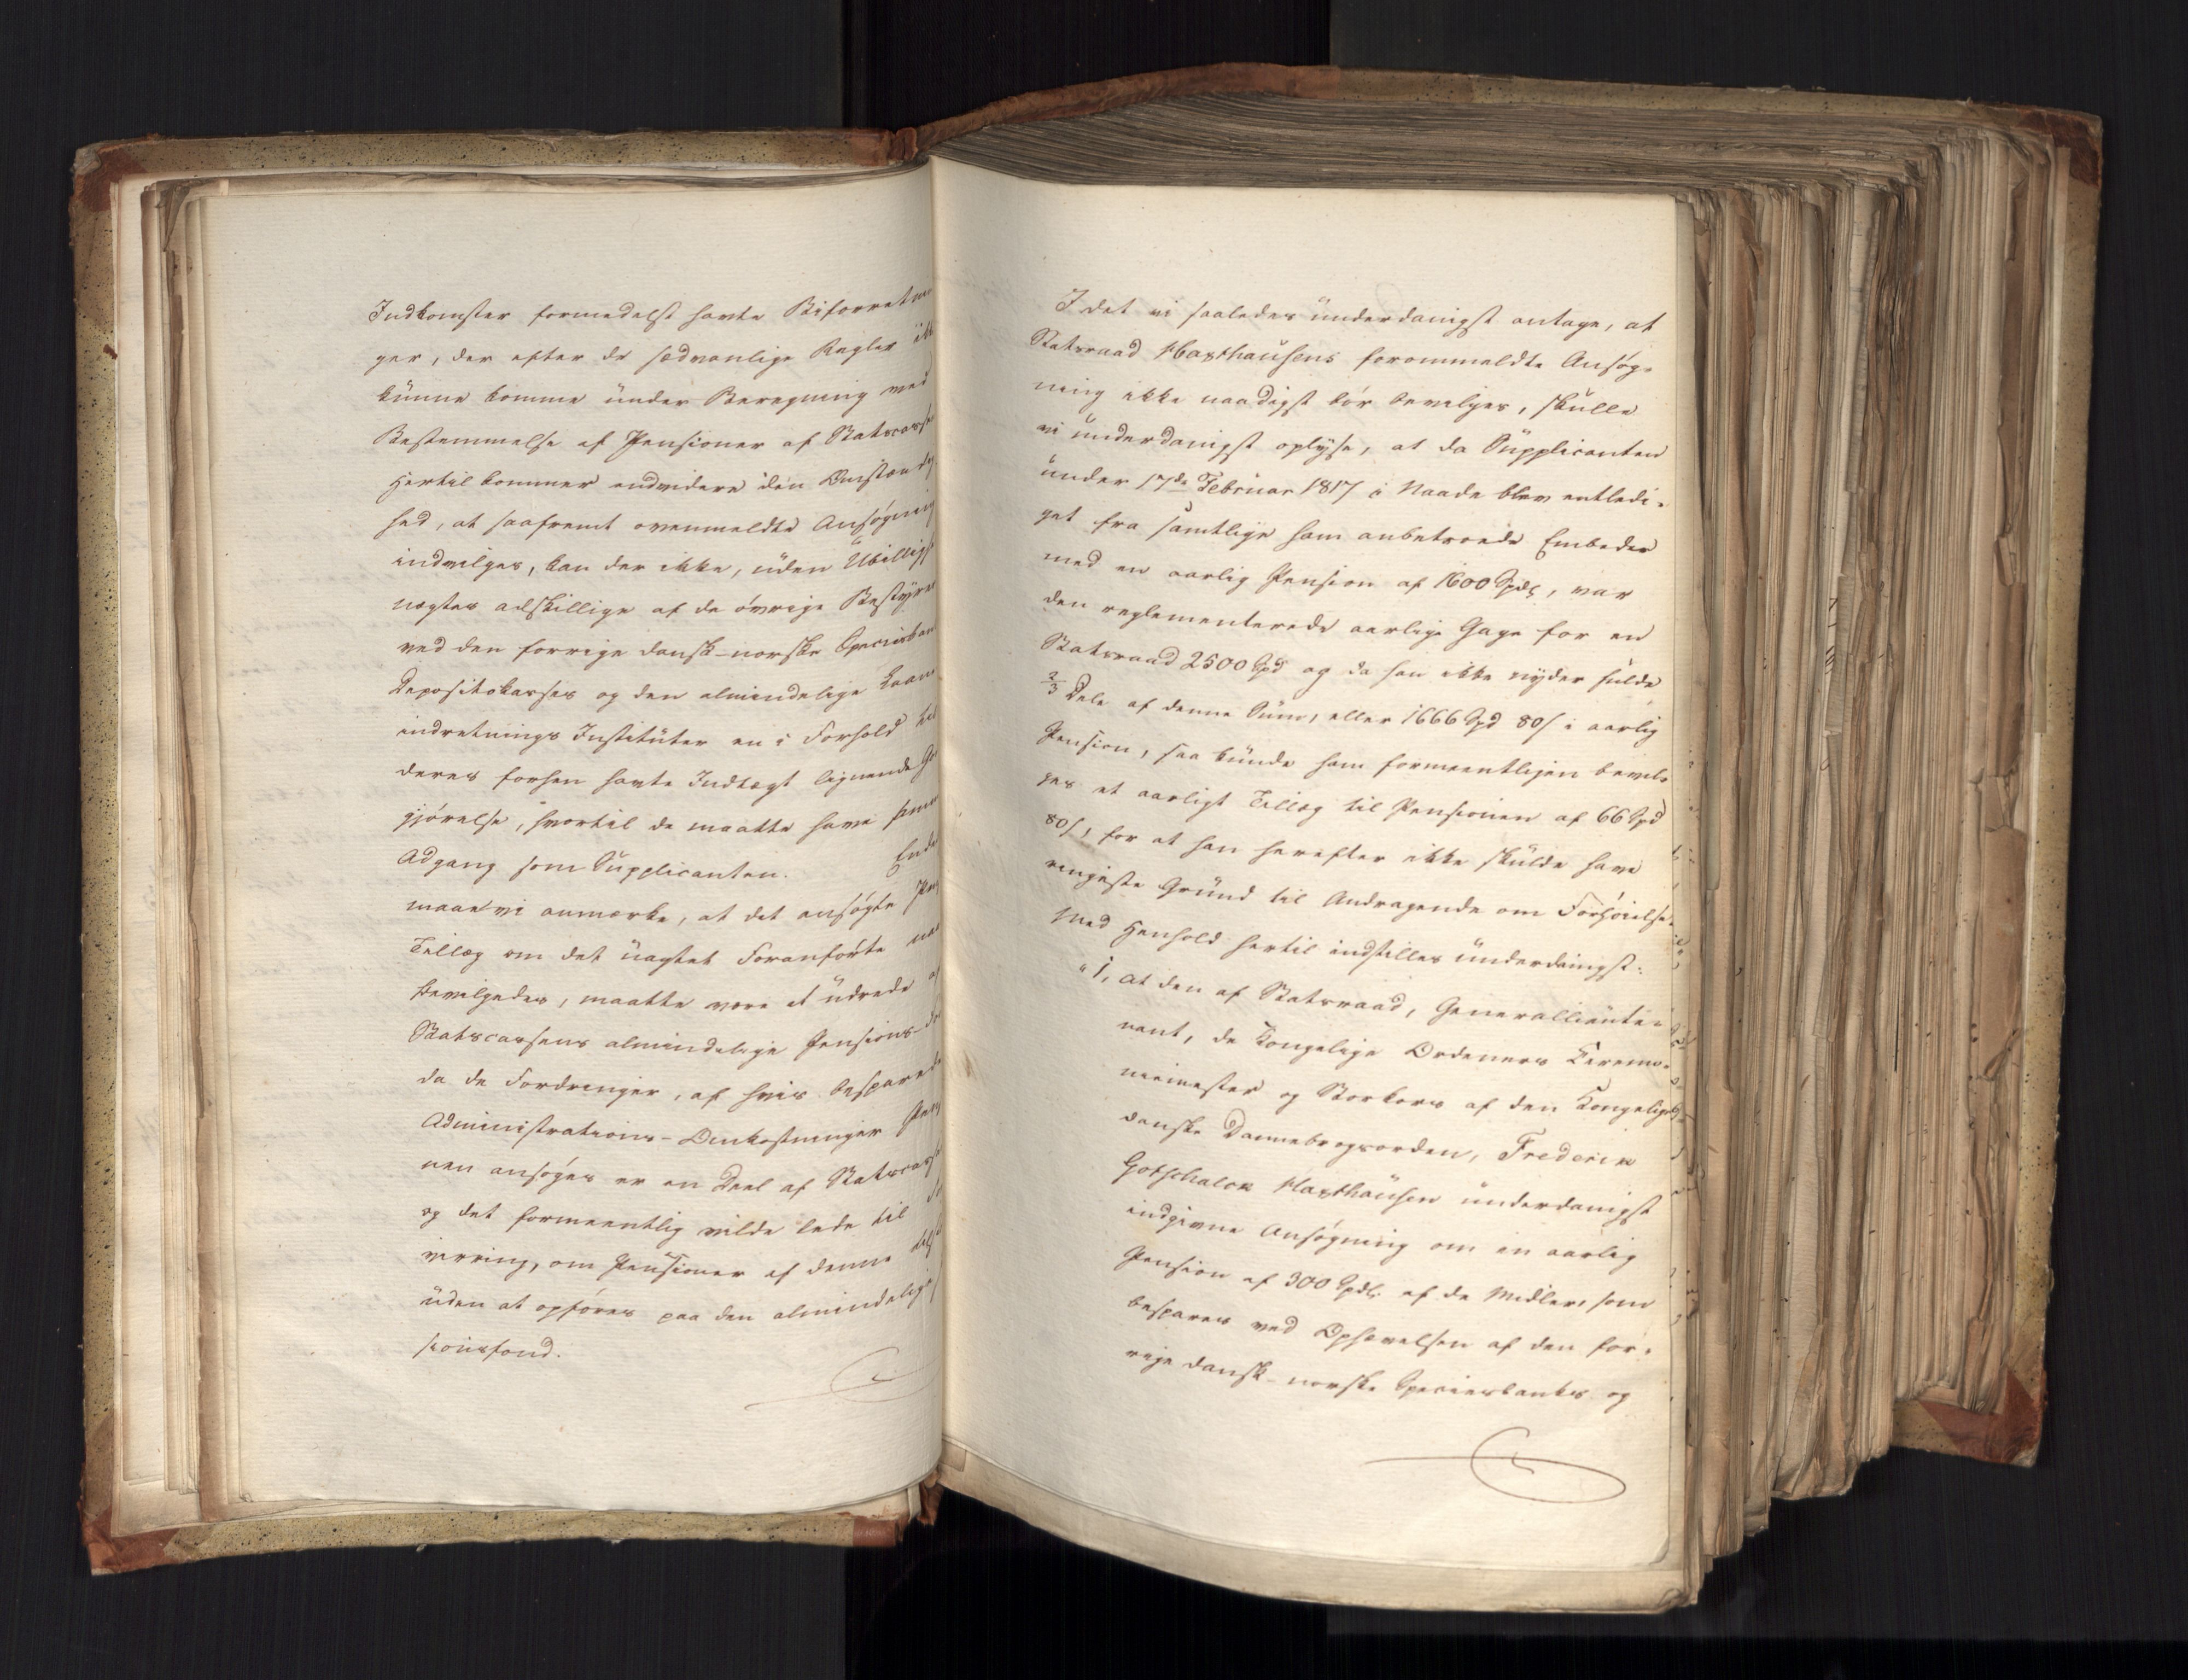 Indkomster formedelst havte Biforretnin
ger, der efter de sædvanlige Regler ikk
kunne komme under Beregning med
Bestemmelse af Pensioner af Statscass
Hertil kommer endvidere den Omstændig
hed, at saafremt ovenmeldte Ansøgning
indvilges, kan der ikke, uden Ubillighe
negtes adskillige af de øvrige Bestyre
ved den forrige dansk-norske Speciesban
Depositokasses og den almindelige Laane
indretnings Institüter en i Forhold til
deres forhen havte Indtægt lignende Go
gjørelse, hvortil de maatte have samme
Adgang som Supplicanten. Ende
maae vi anmærke, at det ansøgte Pen
Tillæg om det uagtet Foranførte
bevilgedes, maatte være at udrede a
Statscassens almindelige Pensions-
da de Fordringer, af hvis besparede
Administrations-Omkostninger Pen
nen ansøges er en Deel af Statscass
og det formeentlig vilde lede til
virring, om Pensioner af denne
uden at opføres paa den almindelig
sionsfond.
I det vi saaledes underdanigst antage, at
Statsraad Haxthausens forommeldte Ansøg-
ning ikke naadigst bør bevilges, skulle
vi underdanigst oplyse, at da Supplicanten
under 17de Februar 1817 i Naade blev entledi-
get fra samtlige ham anbetroede Embeder
med en aarlig Pension af 1600 Spdlr, var
den reglementerede aarlige Gage for en
Statsraad 2500 Spd og da han ikke nyder fulde
2/3 Dele af denne Sum, eller 1666 Spd 80 s i aarlig
Pension, saa kunde ham formeentligen bevil-
ges et aarligt Tillæg til Pensionen af 66 Spd
80 s, for at han herefter ikke skulde have
ringeste Grund til Andragende om Forhøielse.
Med Henhold hertil indstilles underdanigst:
"1, at den af Statsraad, Generallieute-
nant, de Kongelige Ordeners Ceremo-
niemester og Storkors af den Kongelige
danske Dannebrogsorden, Frederik
Gotschalck Haxthausen underdanigst
indgivne Ansøgning om en aarlig
Pension af 300 Spdlr af de Midler, som
bespares ved Ophævelsen af den for-
rige dansk-norske Speciesbanks og